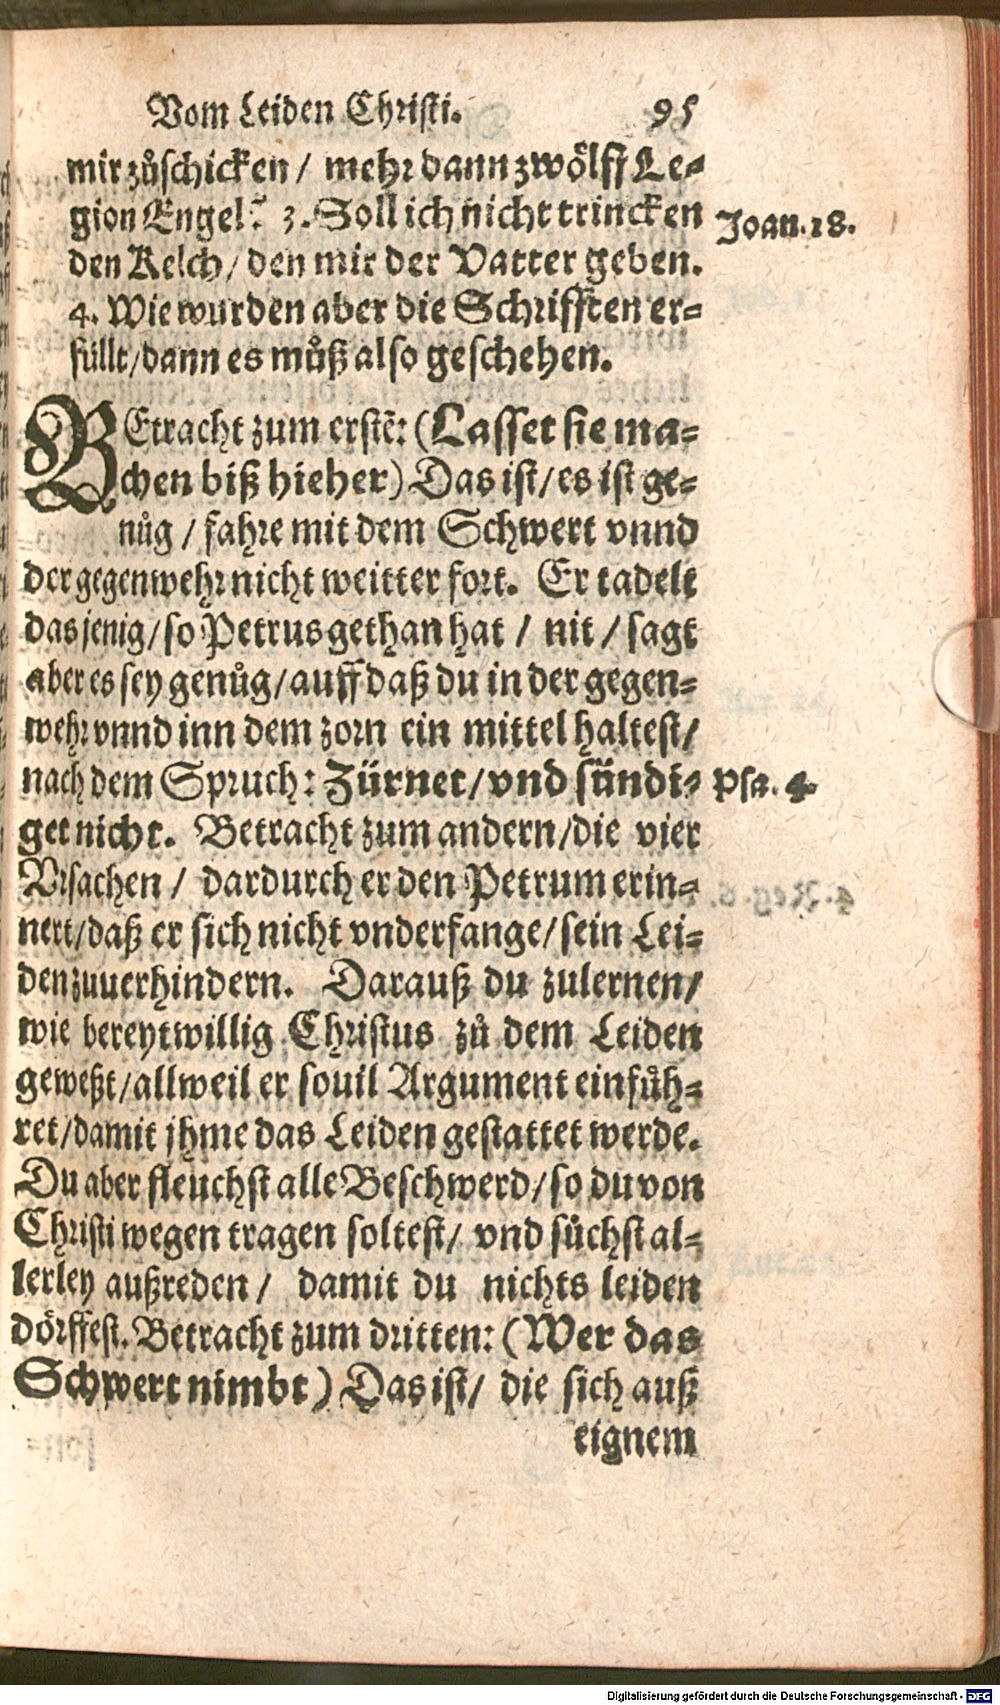 Vom Leiden Christi. 95
mir zůschicken / mehr dann zwölff Le-
gion Engel? 3. Soll ich nicht trincken
Joan. 18.
den Kelch / den mir der Vatter geben.
4. Wie wurden aber die Schrifften er-
füllt / dann es můß also geschehen.
BEtracht zum erstẽ: (Lasset sie ma-
chen biß hieher) Das ist / es ist ge-
nůg / fahre mit dem Schwert vnnd
der gegenwehr nicht weitter fort. Er tadelt
das jenig / so Petrus gethan hat / nit / sagt
aber es sey genůg / auff daß du in der gegen-
wehr vnnd inn dem zorn ein mittel haltest /
nach dem Spruch: Zürnet / vnd sündi-
Psa. 4.
get nicht. Betracht zum andern / die vier
Vrsachen / dardurch er den Petrum erin-
nert / daß er sich nicht vnderfange / sein Lei-
den zuuerhindern. Darauß du zulernen /
wie bereytwillig Christus zů dem Leiden
geweßt / allweil er souil Argument einfüh-
ret / damit jhme das Leiden gestattet werde.
Du aber fleuchst alle Beschwerd / so du von
Christi wegen tragen soltest / vnd sůchst al-
lerley außreden / damit du nichts leiden
dörffest. Betracht zum dritten: (Wer das
Schwert nimbt) Das ist / die sich auß
eignem
Digitalisierung gefördert durch die Deutsche Forschungsgemeinschaft - DFG